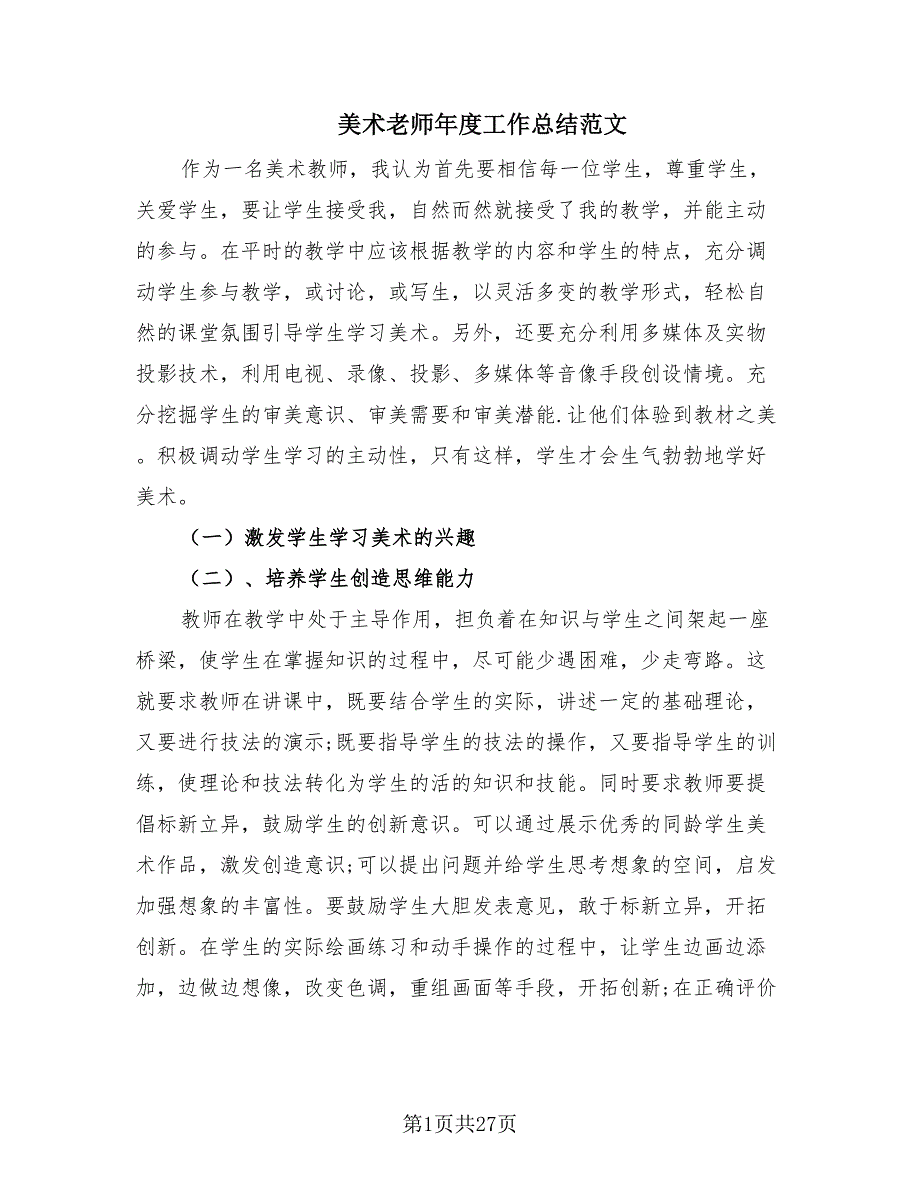 美术老师年度工作总结范文
作为一名美术教师，我认为首先要相信每一位学生，尊重学生，
关爱学生，要让学生接受我，自然而然就接受了我的教学，并能主动
的参与。在平时的教学中应该根据教学的内容和学生的特点，充分调
动学生参与教学，或讨论，或写生，以灵活多变的教学形式，轻松自
然的课堂氛围引导学生学习美术。另外，还要充分利用多媒体及实物
投影技术，利用电视、录像、投影、多媒体等音像手段创设情境。充
分挖掘学生的审美意识、审美需要和审美潜能.让他们体验到教材之美
。积极调动学生学习的主动性，只有这样，学生才会生气勃勃地学好
美术。
（一）激发学生学习美术的兴趣
（二）、培养学生创造思维能力
教师在教学中处于主导作用，担负着在知识与学生之间架起一座
桥梁，使学生在掌握知识的过程中，尽可能少遇困难，少走弯路。这
就要求教师在讲课中，既要结合学生的实际，讲述一定的基础理论，
又要进行技法的演示;既要指导学生的技法的操作，又要指导学生的训
练，使理论和技法转化为学生的活的知识和技能。同时要求教师要提
倡标新立异，鼓励学生的创新意识。可以通过展示优秀的同龄学生美
术作品，激发创造意识;可以提出问题并给学生思考想象的空间，启发
加强想象的丰富性。要鼓励学生大胆发表意见，敢于标新立异，开拓
创新。在学生的实际绘画练习和动手操作的过程中，让学生边画边添
加，边做边想像，改变色调，重组画面等手段，开拓创新;在正确评价
第1页共27页